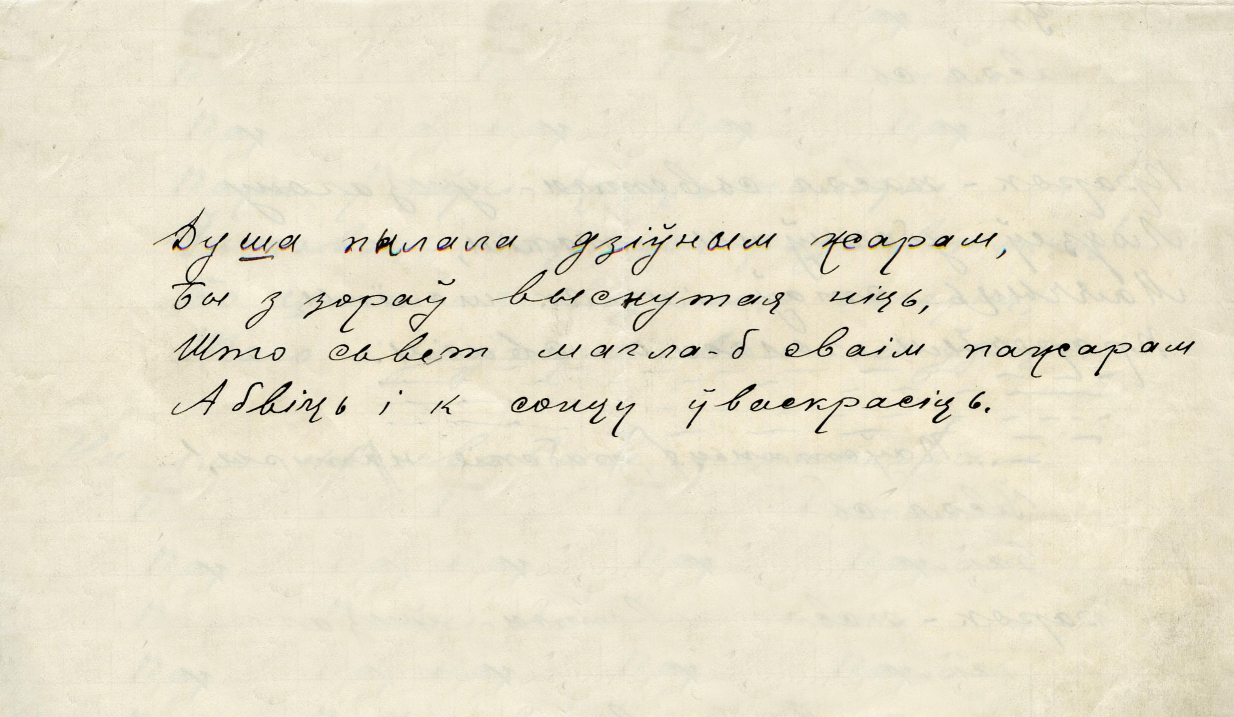 Душа пылала дзіўным жарам,
Бы з зораў выснутая ніць,
Што сьвет магла-б сваім пажарам
Абвіць і к сонцу ўваскрасіць.